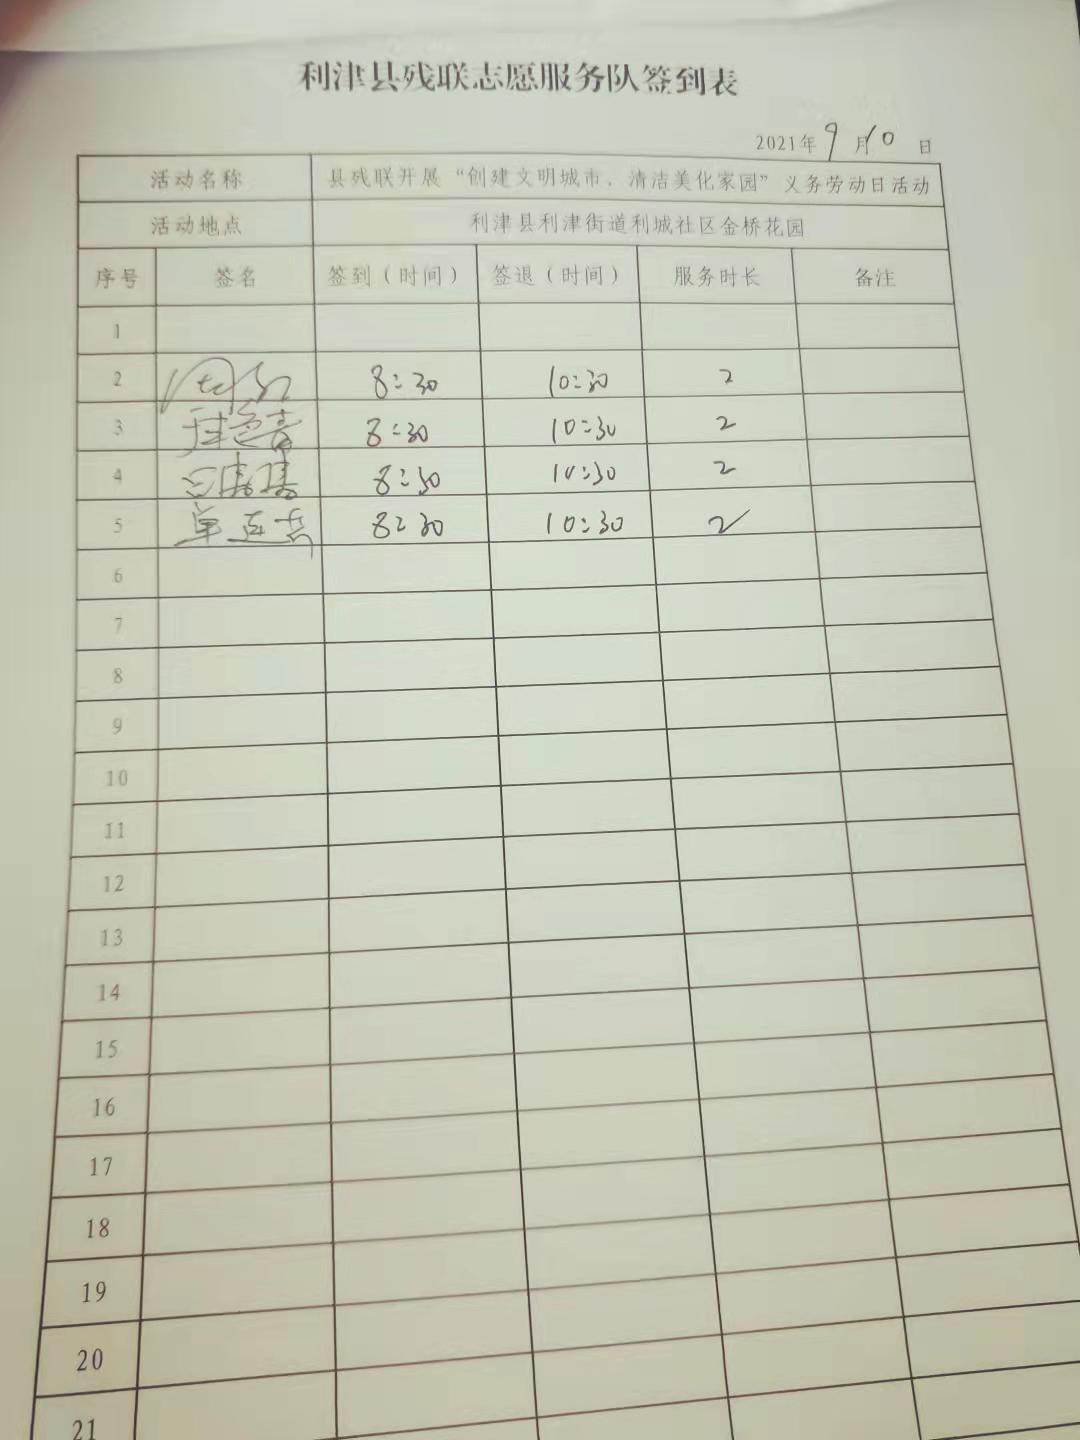 利津县残联志愿服务队签到表
2021年9月10日
活动名称 县残联开展“创建文明城市、清洁美化家园”义务劳动日活动
活动地点 利津县利津街道利城社区金桥花园
序号 签名 签到（时间） 签退（时间） 服务时长 备注
1
2 8:30 10:30 2
3 8:30 10:30 2
4 8:30 10:30 2
5 8:30 10:30 2
6
7
8
9
10
11
12
13
14
15
16
17
18
19
20
21